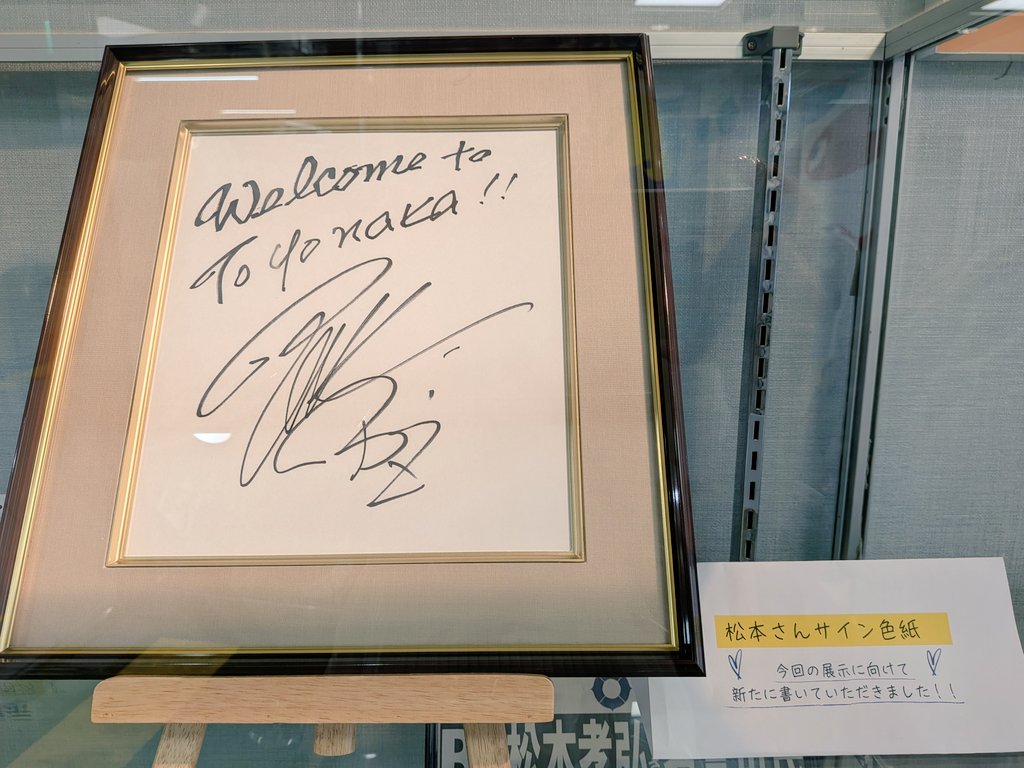 Welcome to
Toyonaka!!
B'z
松本さんサイン色紙
今回の展示に向けて
新たに書いていただきました！！
B
松本孝弘